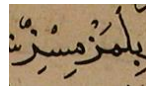 بِلْمَزْمِسِيزْ